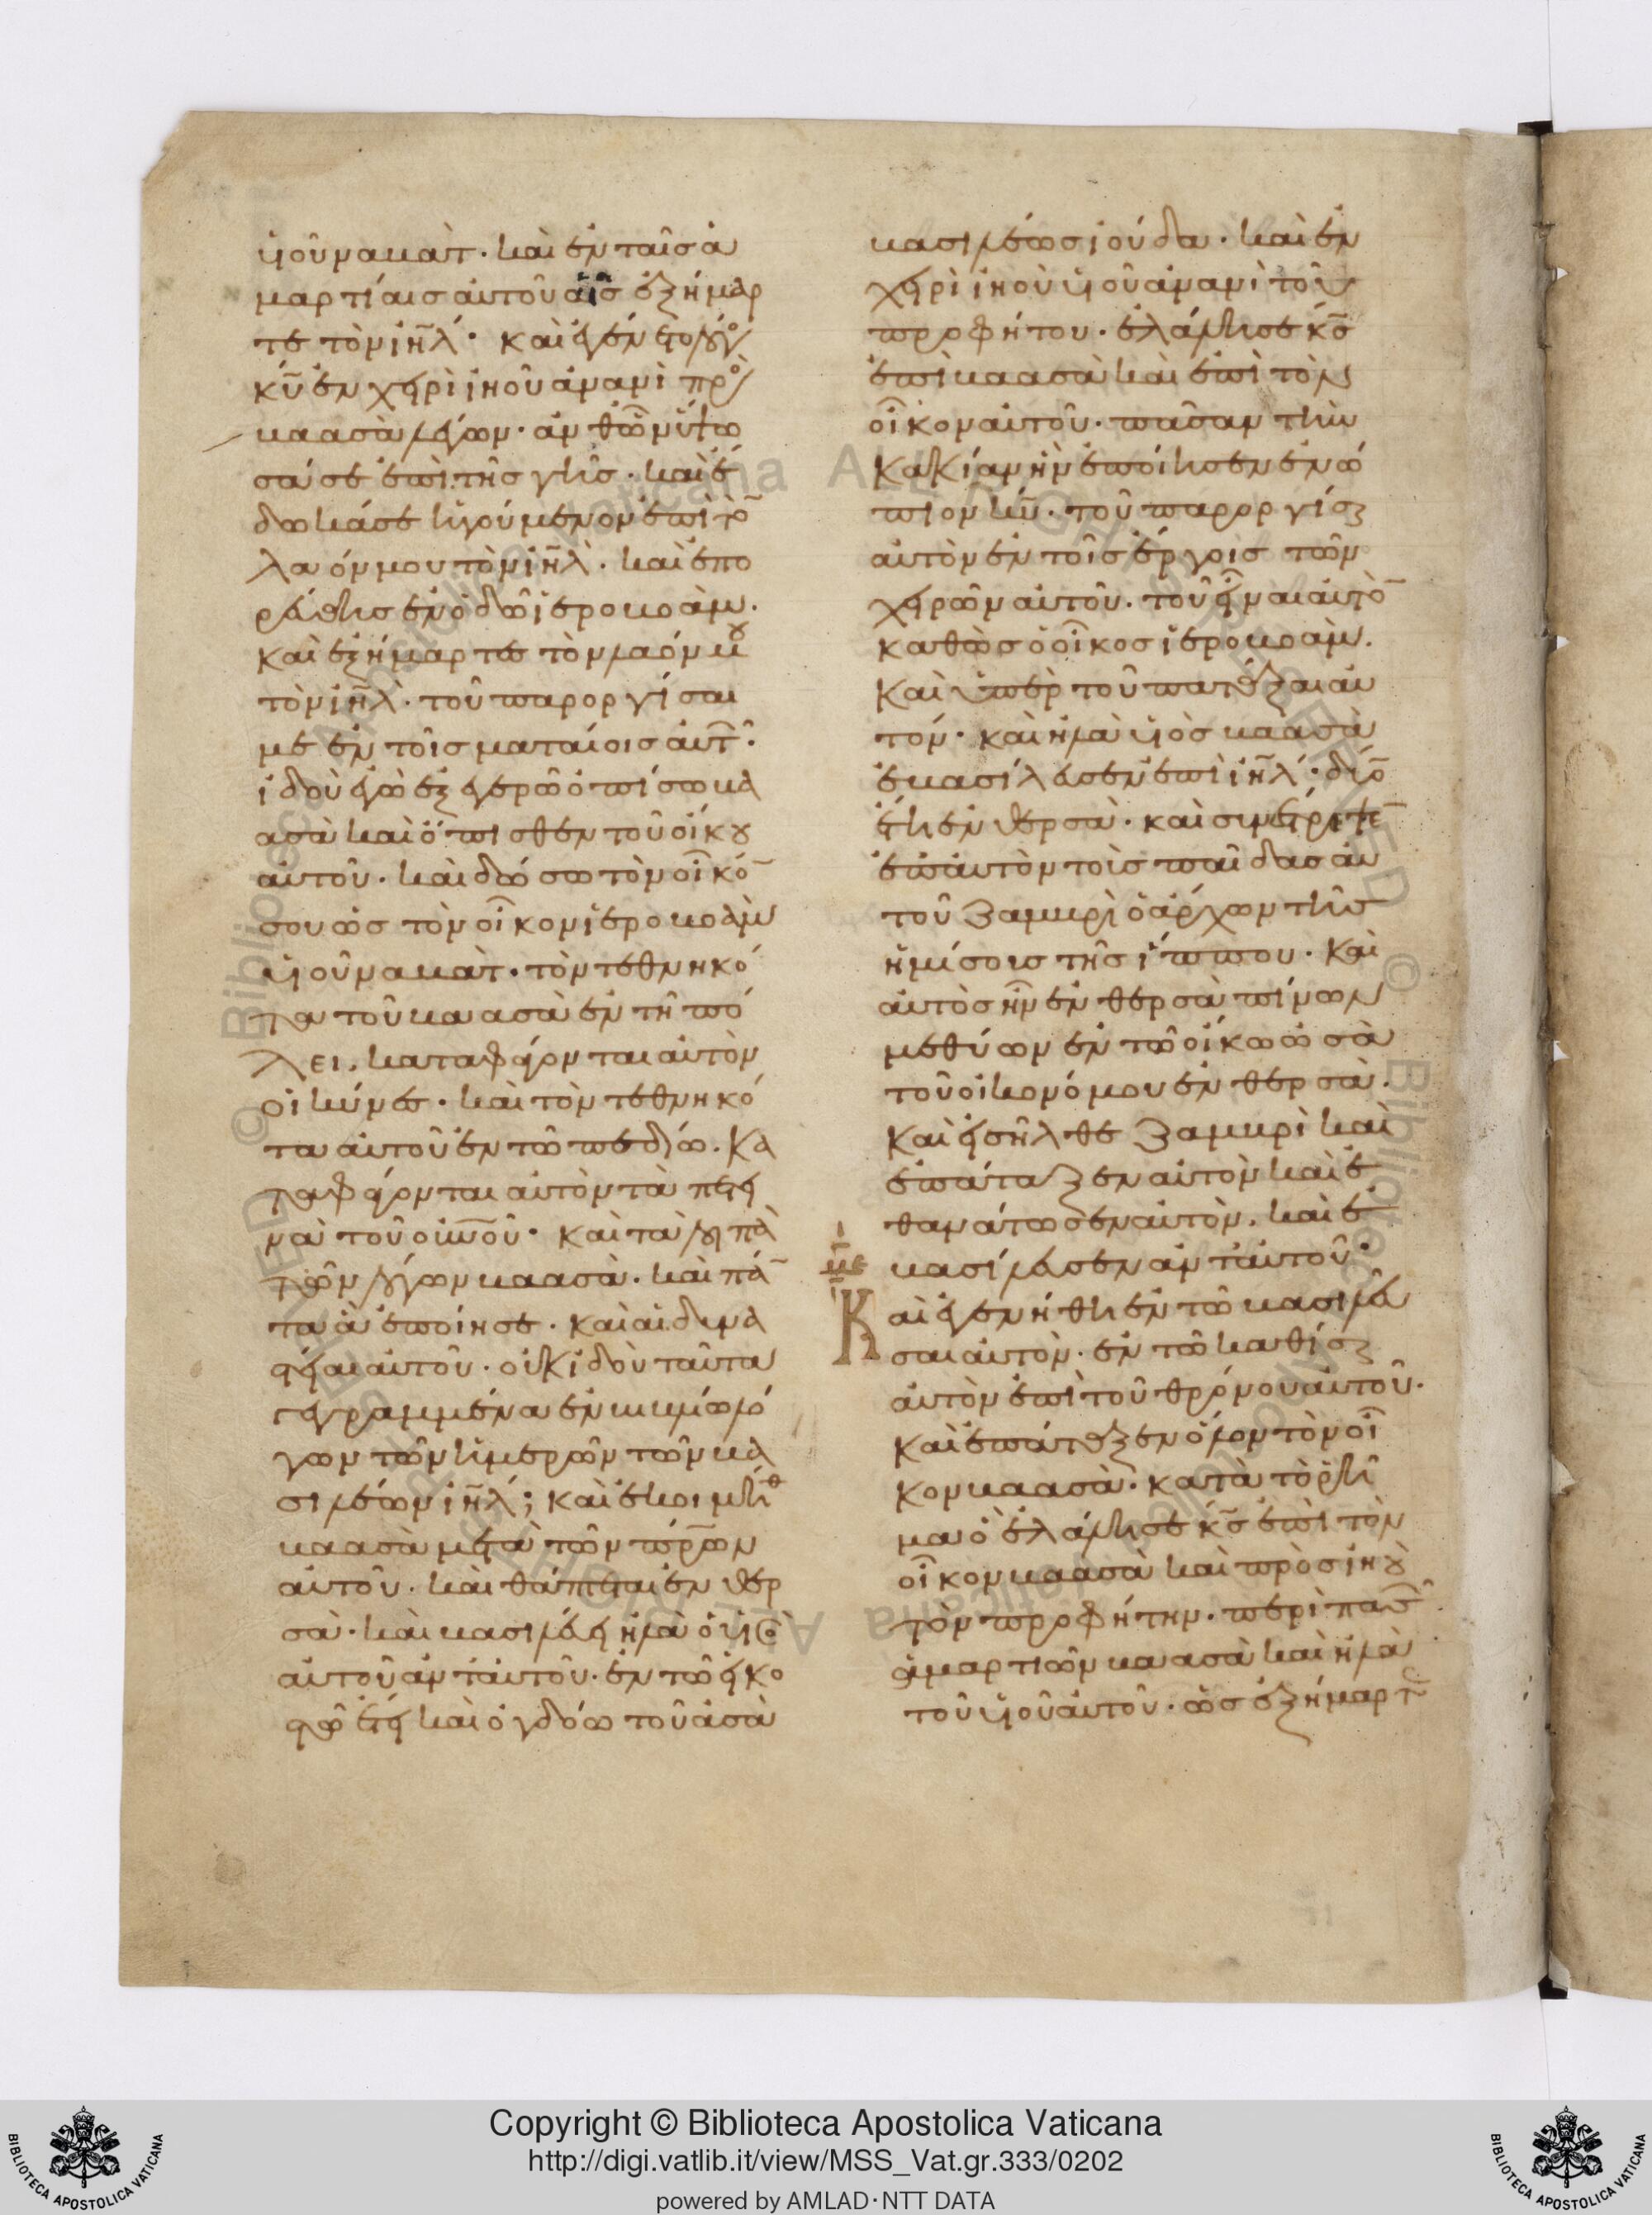 υἱοῦ ναβὰτ· καὶ ἐν ταῖς ἁ
μαρτίαις αὐτοῦ αἷς ἐξήμαρ
τε τὸν ἰη̅λ· καὶ ἐγένετο λόγο
κυ̅ ἐν χειρὶ ἰηοῦ ἀνανὶ προ
βαασὰ λέγων· ἀνθ ὧν ὕψω
σά σε ἐπὶ τῆς γῆς· καὶ ἔ
δωκά σε ἡγούμενον ἐπὶ το̅
λαόν μου τὸν ἰη̅λ· καὶ ἐπο
ρεύθης ἐν ὁδῶ ἱεροβοάμ·
καὶ ἐξήμαρτες τὸν λαόν μου
τὸν ἰη̅λ· τοῦ παροργίσαι
με ἐν τοῖς ματαίοις αὐτ·
ἰδοὺ ἐγὼ ἐξεγερῶ ὀπίσω βα
ασὰ καὶ ὄπισθεν τοῦ οἴκου
αὐτοῦ· καὶ δώσω τὸν οἶκό̅
σου ὡς τὸν οἶκον ἱεροβοὰμ
υἱοῦ ναβὰτ· τὸν τεθνηκό
τα τοῦ βαασὰ ἐν τῆ πό
λει, καταφάγονται αὐτὸν
οἱ κύνες· καὶ τὸν τεθνηκό
τα αὐτοῦ ἐν τῶ πεδίω. κα
ταφάγονται αὐτὸν τὰ πετει
νὰ τοῦ οὐ̅νοῦ· καὶ τὰ λοιπὰ
τῶν λόγων βαασὰ· καὶ πά̅
τα ἃ ἐποίησε· καὶ αἱ δυνα
στεῖαι αὐτοῦ· οὐκ ἰδοὺ ταῦτα
γεγραμμένα ἐν βιβλίω λό
γων τῶν ἡμερῶν τῶν βα
σιλέων ἰη̅λ; καὶ ἐκοιμήθ
βαασὰ μετὰ τῶν π̅ρ̅ων
αὐτοῦ· καὶ θάπτεται ἐν θερ
σὰ· καὶ βασιλεύει ἠλὰ ὁ υἱὸς
αὐτοῦ ἀντ αὐτοῦ· ἐν τῶ εἰκο
στῶ ἔτει καὶ ὀγδόω τοῦ ἀσὰ
βασιλέως ἰούδα· καὶ ἐν
χειρὶ ἰηοὺ υἱοῦ ἀνανὶ τοῦ
προφήτου· ἐλάλησε κς̅
ἐπὶ βαασὰ καὶ ἐπὶ τὸν
οἶκον αὐτοῦ· πᾶσαν τὴν
κακίαν ἣν ἐποίησεν ἐνώ
πιον κυ̅· τοῦ παροργίσαι
αὐτὸν ἐν τοῖς ἔργοις τῶν
χειρῶν αὐτοῦ· τοῦ εἶναι αὐτὸ̅
καθὼς ὁ οἶκος ἱεροβοὰμ.
καὶ ὑπὲρ τοῦ πατάξαι αὐ
τόν· καὶ ἠλὰ υἱὸς βαασὰ
ἐβασίλευσεν ἐπὶ ἰη̅λ· δύο̅
ἔτη ἐν θερσὰ· καὶ συνέστρεψε̅
ἐπ αὐτὸν τοὶς παῖδας αὐ
τοῦ ζαμβρὶ ὁ ἄρχων τῆς
ἡμίσοις τῆς ἵππου· καὶ
αὐτὸς ἦν ἐν θερσὰ πίνων
μεθύων ἐν τῶ οἴκω ὠσὰ
τοῦ οἰκονόμου ἐν θερσὰ.
καὶ εἰσῆλθε ζαμβρὶ καὶ
ἐπάταξεν αὐτὸν καὶ ἐ
θανάτωσεν αὐτὸν. καὶ ἐ
βασίλευσεν ἀντ αὐτοῦ·
Καὶ ἐγενήθη ἐν τῶ βασιλεῦ
σαι αὐτὸν· ἐν τῶ καθίσαι
αὐτὸν ἐπὶ τοῦ θρόνου αὐτοῦ.
καὶ ἐπάταξεν ὅλον τὸν οἶ
κον βαασὰ· κατὰ τὸ ῥῆ
μα ὃ ἐλάλησε κς̅ ἐπὶ τὸν
οἶκον βαασὰ καὶ πρὸς ἰηοὺ
τὸν προφήτην· περὶ πασ
ἁμαρτιῶν βαασὰ καὶ ἠλὰ
τοῦ υἱοῦ αὐτοῦ· ὡς ἐξήμαρτ